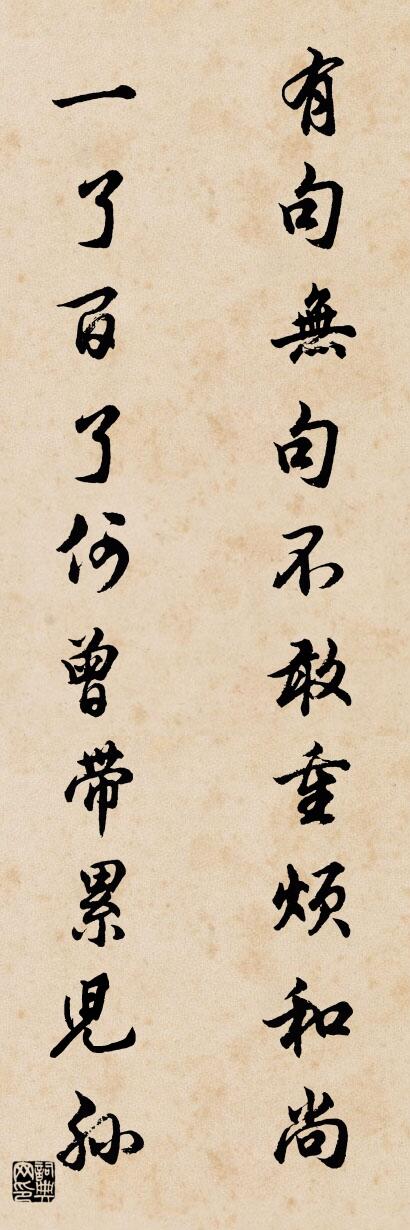 有句無句不敢重煩和尚
一了百了何曾帶累兒孫
詞典网印